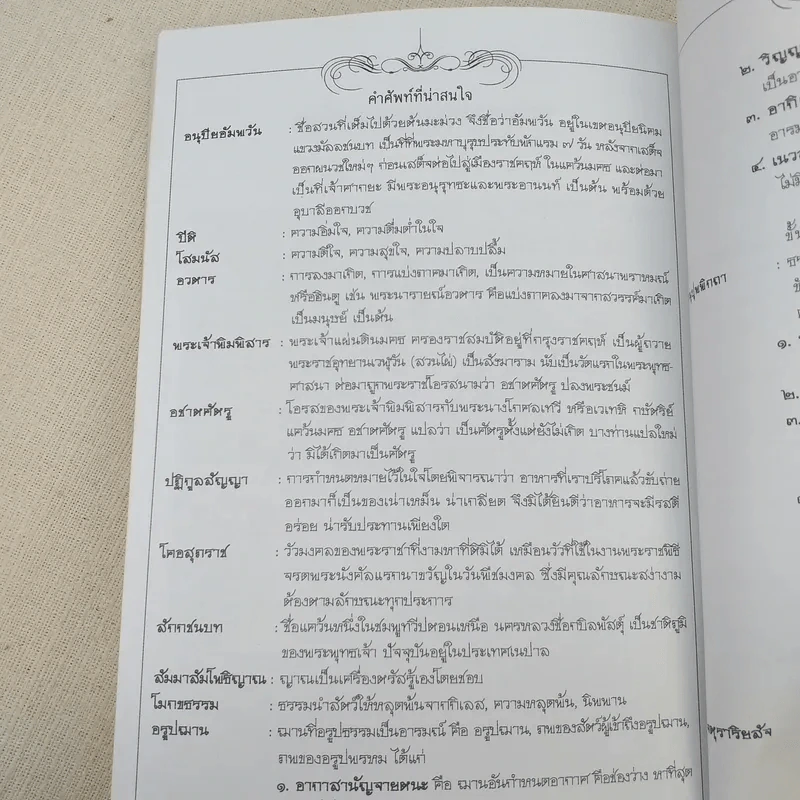 คำศัพท์ที่น่าสนใจ
อนุปิยอัมพวัน : ชื่อสวนที่เต็มไปด้วยต้นมะม่วง จึงชื่อว่าอัมพวัน อยู่ในเขตอนุปิยนิคม
แขวงมัลลชนบท เป็นที่ที่พระมหาบุรุษประทับพักแรม ๗ วัน หลังจากเสด็จ
ออกผนวชใหม่ๆ ก่อนเสด็จต่อไปสู่เมืองราชคฤห์ ในแคว้นมคธ และต่อมา
เป็นที่เจ้าศากยะ มีพระอนุรุทธะและพระอานนท์ เป็นต้น พร้อมด้วย
อุบาลีออกบวช
ปีติ : ความอิ่มใจ, ความดื่มด่ำในใจ
โสมนัส : ความดีใจ, ความสุขใจ, ความปลาบปลื้ม
อวตาร : การลงมาเกิด, การแบ่งภาคมาเกิด, เป็นความหมายในศาสนาพราหมณ์
หรือฮินดู เช่น พระนารายณ์อวตาร คือแบ่งภาคลงมาจากสวรรค์มาเกิด
เป็นมนุษย์ เป็นต้น
พระเจ้าพิมพิสาร : พระเจ้าแผ่นดินมคธ ครองราชสมบัติอยู่ที่กรุงราชคฤห์ เป็นผู้ถวาย
พระราชอุทยานเวฬุวัน (สวนไผ่) เป็นสังฆาราม นับเป็นวัดแรกในพระพุทธ-
ศาสนา ต่อมาถูกพระราชโอรสนามว่า อชาตศัตรู ปลงพระชนม์
อชาตศัตรู : โอรสของพระเจ้าพิมพิสารกับพระนางโกศลเทวี หรือเวเทหิ กษัตริย์
แคว้นมคธ อชาตศัตรู แปลว่า เป็นศัตรูตั้งแต่ยังไม่เกิด บางท่านแปลใหม่
ว่า มิได้เกิดมาเป็นศัตรู
ปฏิกูลสัญญา : การกำหนดหมายไว้ในใจโดยพิจารณาว่า อาหารที่เราบริโภคแล้วขับถ่าย
ออกมาก็เป็นของเน่าเหม็น น่าเกลียด จึงมิได้ยินดีว่าอาหารจะมีรสดี
อร่อย น่ารับประทานเพียงใด
โคอสุภราช : วัวมงคลของพระราชาที่งามหาที่ติมิได้ เหมือนวัวที่ใช้ในงานพระราชพิธี
จรดพระนังคัลแรกนาขวัญในวันพืชมงคล ซึ่งมีคุณลักษณะสง่างาม
ต้องตามลักษณะทุกประการ
สักกชนบท : ชื่อแคว้นหนึ่งในชมพูทวีปตอนเหนือ นครหลวงชื่อกบิลพัสดุ์ เป็นชาติภูมิ
ของพระพุทธเจ้า ปัจจุบันอยู่ในประเทศเนปาล
สัมมาสัมโพธิญาณ : ญาณเป็นเครื่องตรัสรู้เองโดยชอบ
โมกขธรรม : ธรรมนำสัตว์ให้หลุดพ้นจากกิเลส, ความหลุดพ้น, นิพพาน
อรูปฌาน : ฌานที่อรูปธรรมเป็นอารมณ์ คือ อรูปฌาน, ภพของสัตว์ผู้เข้าถึงอรูปฌาน,
ภพของอรูปพรหม ได้แก่
๑. อากาสานัญจายตนะ คือ ฌานอันกำหนดอากาศ คือช่องว่าง หาที่สุด
๒.
๓.
๔.
๑.
๒.
๓.